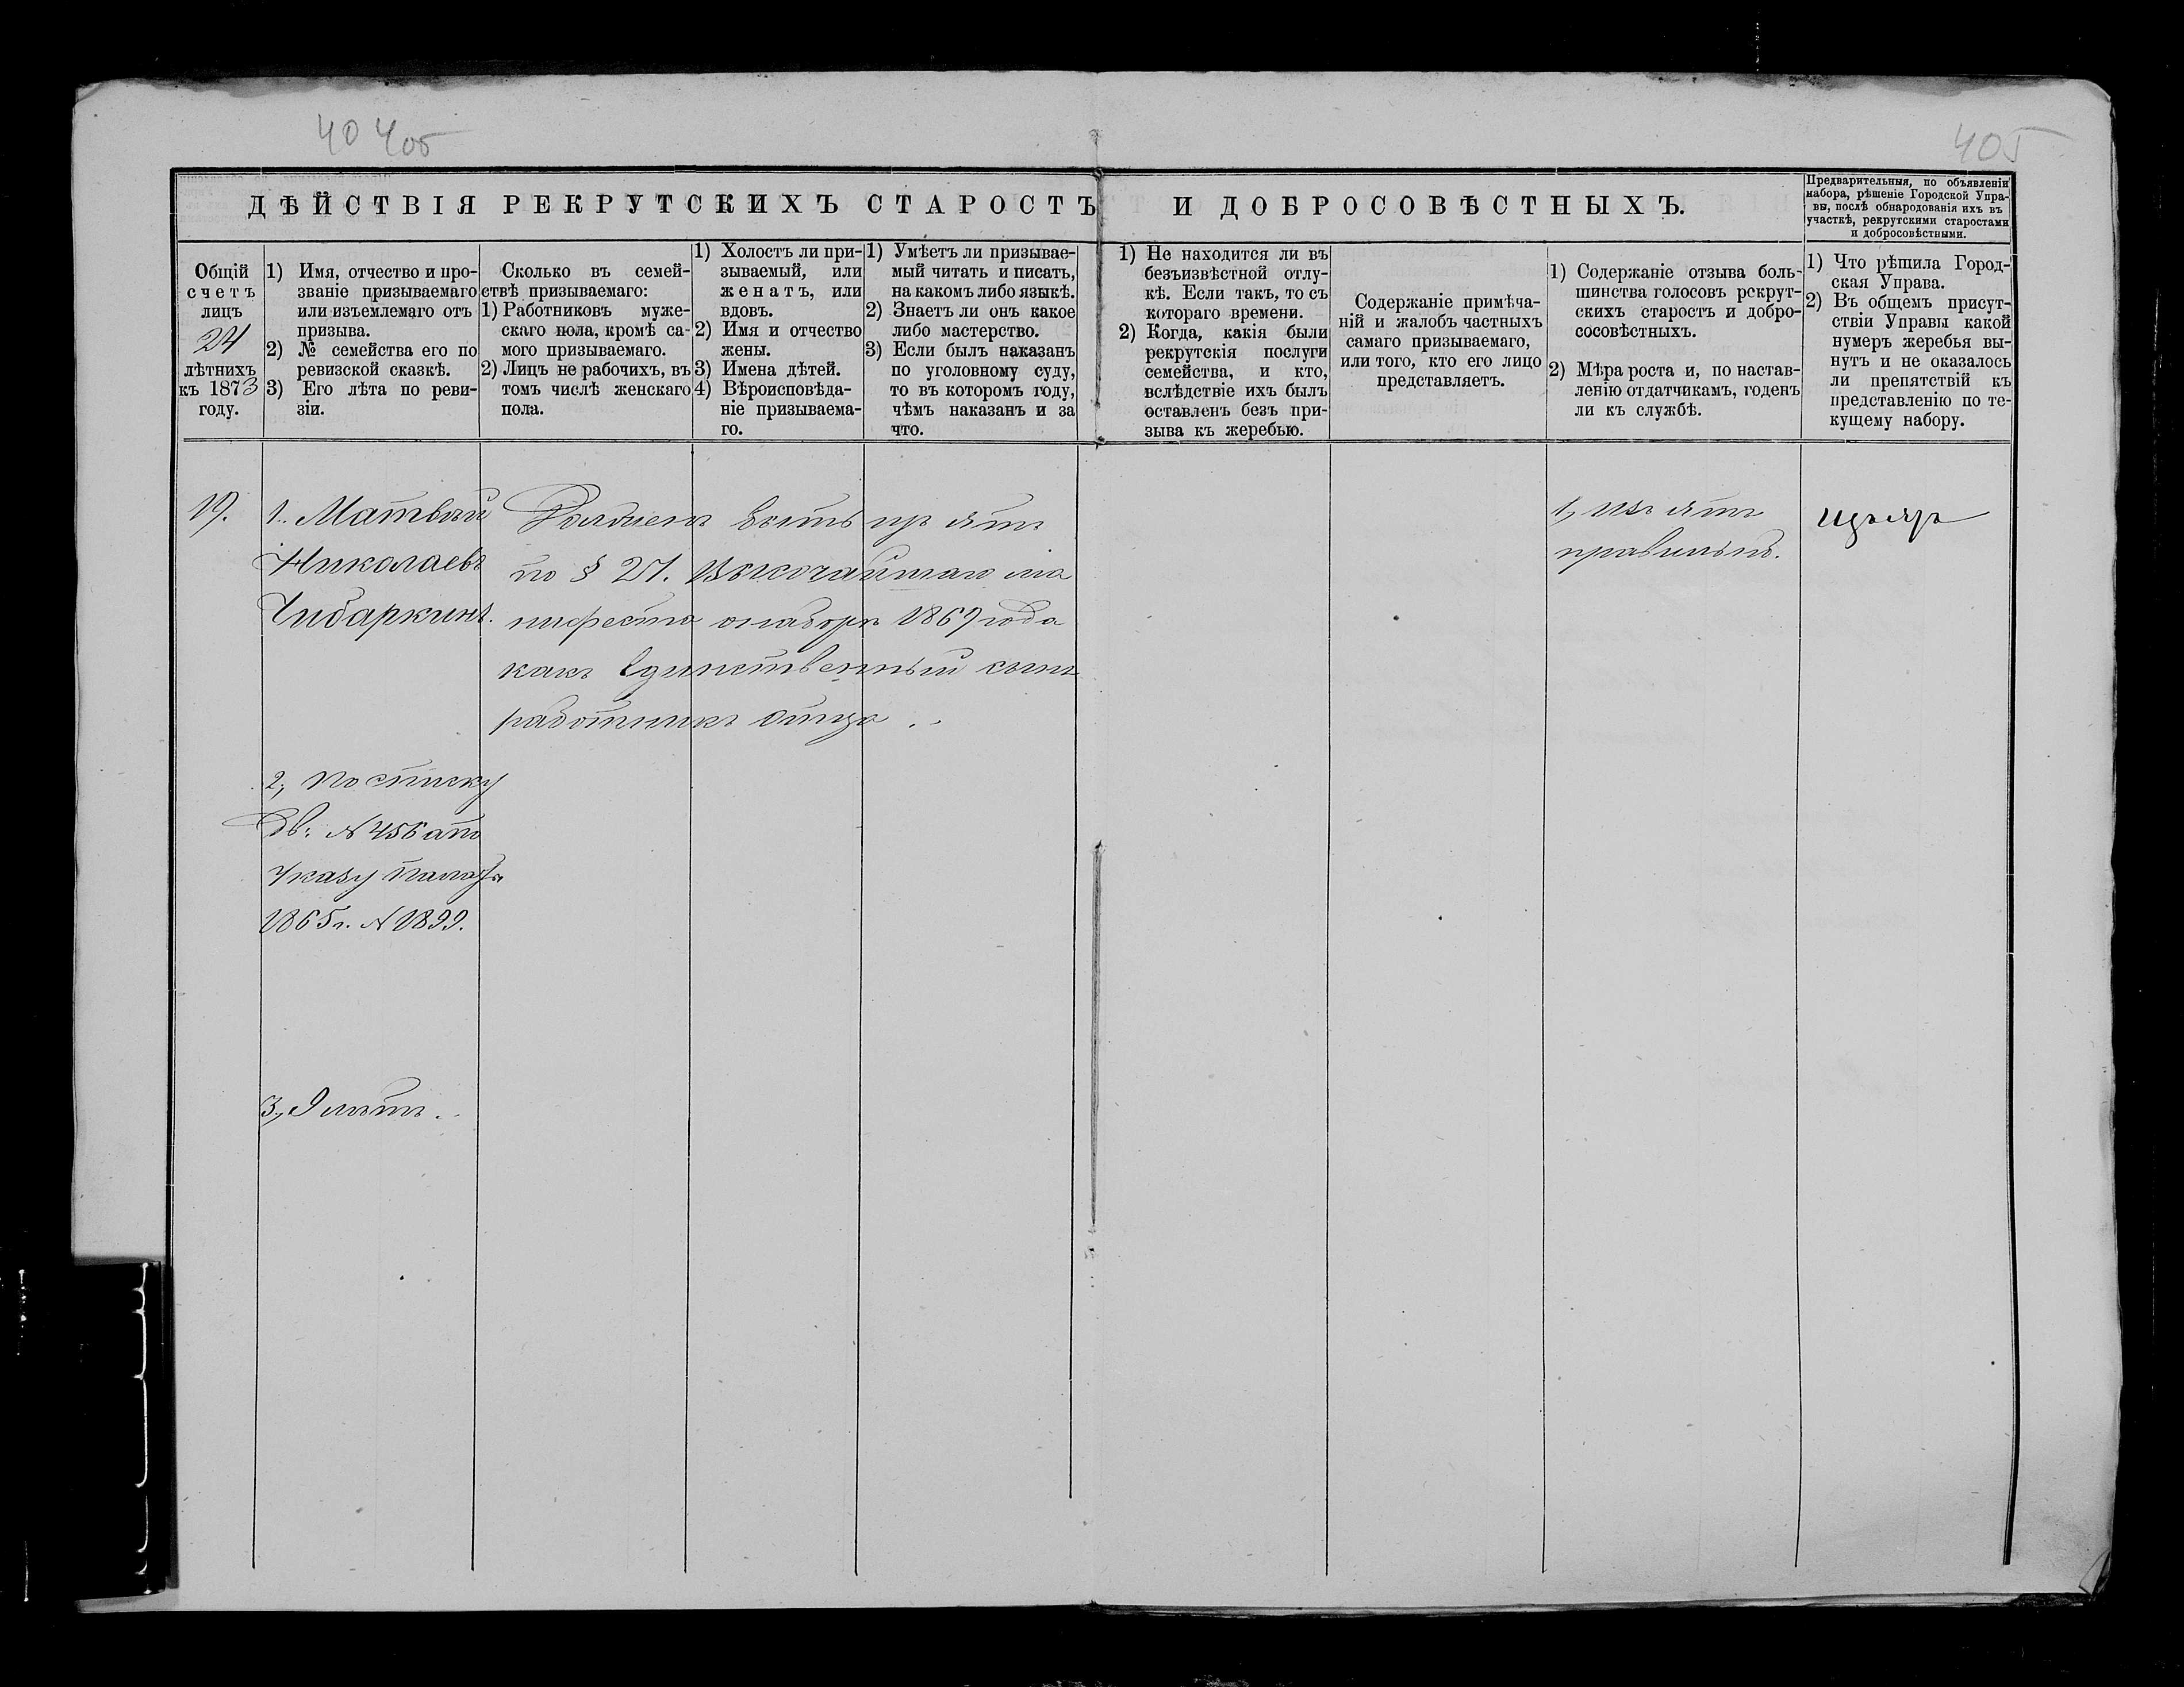 40 4об
405
ДѢЙСТВІЯ РЕКРУТСКИХЪ СТАРОСТЪ И ДОБРОСОВѢСТНЫХЪ.
Предварительныя, по объявленіи
набора, рѣшеніе Городской Упра-
вы, послѣ обнародованія ихъ въ
участкѣ, рекрутскими старостами
и добросовѣстными.
Общій
счетъ
лицъ
24
лѣтнихъ
къ 1873
году.
1) Имя, отчество и про-
званіе призываемаго
или изъемлемаго отъ
призыва.
2) № семейства его по
ревизской сказкѣ.
3) Его лѣта по реви-
зіи.
Сколько въ семей-
ствѣ призываемаго:
1) Работниковъ муже-
скаго пола, кромѣ са-
мого призываемаго.
2) Лицъ не рабочихъ, въ
томъ числѣ женскаго
пола.
1) Холостъ ли при-
зываемый, или
женатъ, или
вдовъ.
2) Имя и отчество
жены.
3) Имена дѣтей.
4) Вѣроисповѣда-
ніе призываема-
го.
1) Умѣетъ ли призывае-
мый читать и писать,
на какомъ либо языкѣ.
2) Знаетъ ли онъ какое
либо мастерство.
3) Если былъ наказанъ
по уголовному суду,
то въ которомъ году,
чѣмъ наказанъ и за
что.
1) Не находится ли въ
безъизвѣстной отлу-
кѣ. Если такъ, то съ
котораго времени.
2) Когда, какія были
рекрутскія послуги
семейства, и кто,
вслѣдствіе ихъ былъ
оставленъ безъ при-
зыва къ жеребью.
Содержаніе примѣча-
ній и жалобъ частныхъ
самаго призываемаго,
или того, кто его лицо
представляетъ.
1) Содержаніе отзыва боль-
шинства голосовъ рекрут-
скихъ старостъ и добро-
совѣстныхъ.
2) Мѣра роста и, по настав-
ленію отдатчикамъ, годенъ
ли къ службѣ.
1) Что рѣшила Город-
ская Управа.
2) Въ общемъ присут-
ствіи Управы какой
нумеръ жеребья вы-
нутъ и не оказалось
ли препятствій къ
представленію по те-
кущему набору.
19.
1. Матвѣй
Николаевъ
Чибаркинъ.
Долженъ быть изъятъ
по § 27. Высочайшаго ма
нифеста о наборѣ 1869 года
какъ единственный сынъ
работникъ отца.
1, изъятъ
правильно.
2, по списку
Дв. № 456 а по
указу палаты
1865 г. № 1899.
3, 9 лѣтъ.